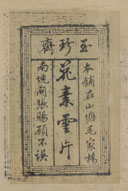 玉珍齋
本舖在山塘毛家橋
花素雲片
南堍開張賜顧不誤